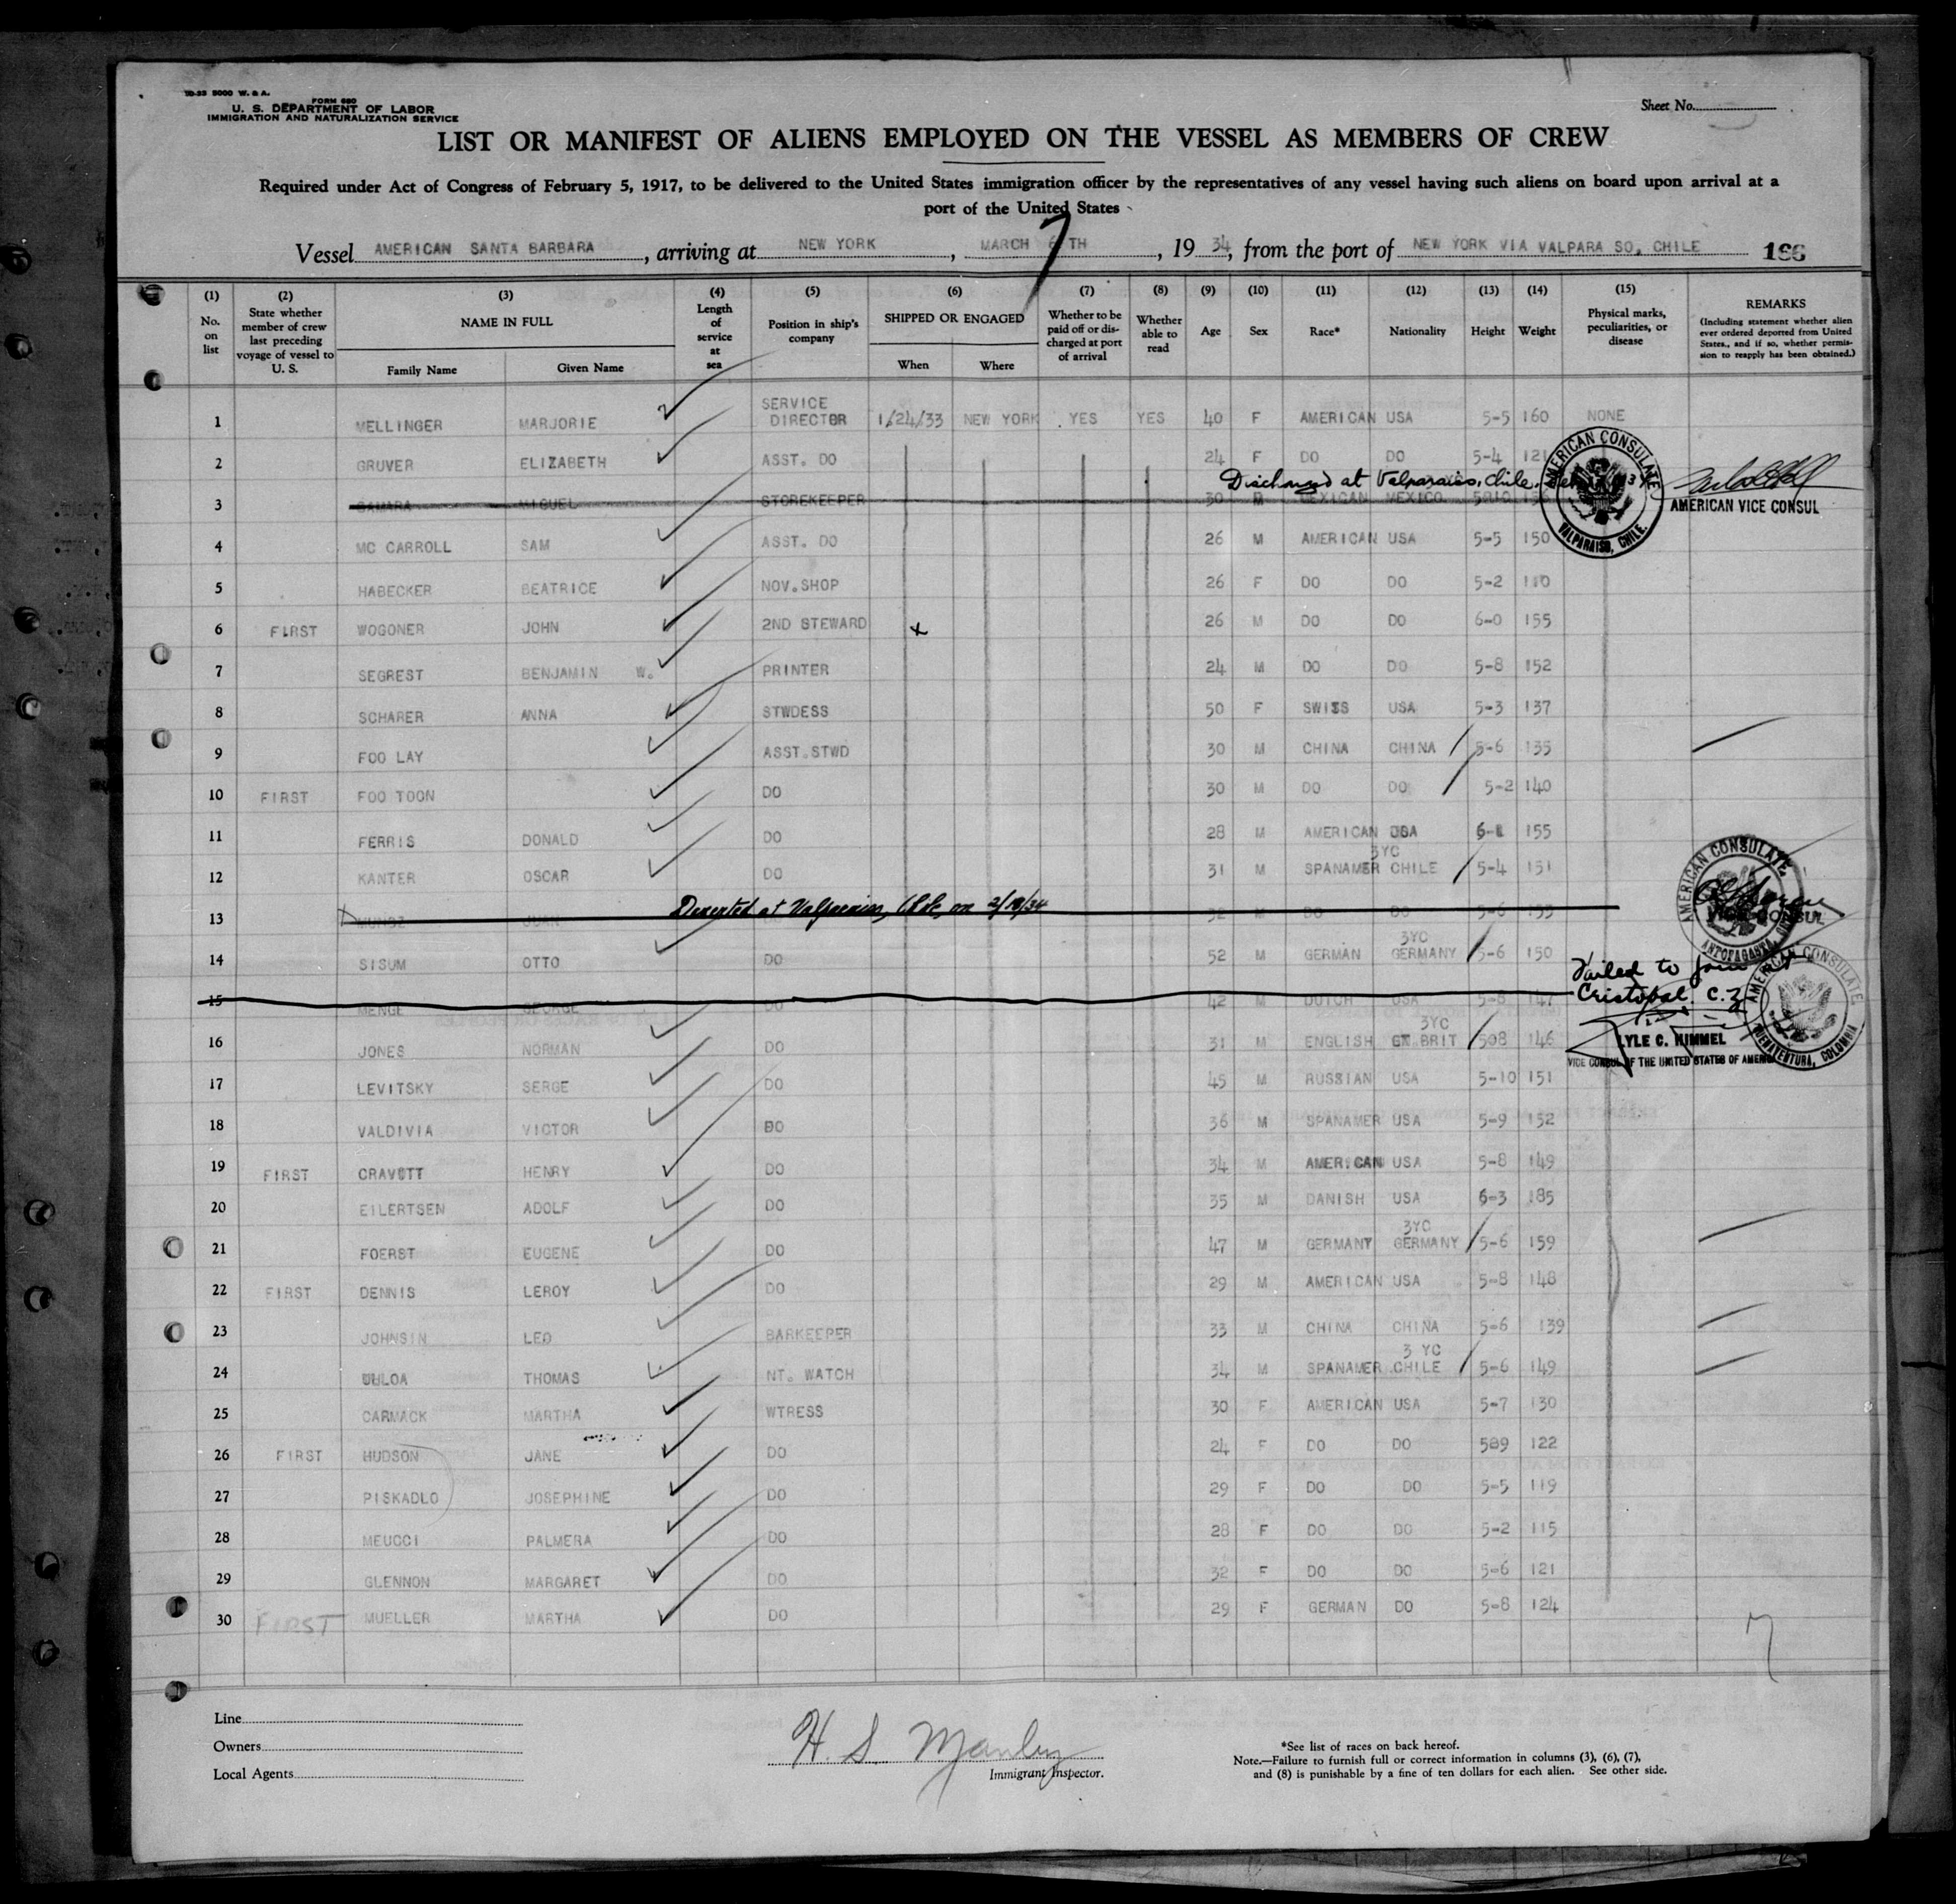 10-33 5000 W. & A.
FORM 680
U. S. DEPARTMENT OF LABOR
IMMIGRATION AND NATURALIZATION SERVICE
Sheet No.
LIST OR MANIFEST OF ALIENS EMPLOYED ON THE VESSEL AS MEMBERS OF CREW
Required under Act of Congress of February 5, 1917, to be delivered to the United States immigration officer by the representatives of any vessel having such aliens on board upon arrival at a
port of the United States
Vessel AMERICAN SANTA BARBARA, arriving at NEW YORK, MARCH 7 TH, 19 34, from the port of NEW YORK VIA VALPARA SO, CHILE 186
(1) No. on list
(2) State whether member of crew last preceding voyage of vessel to U. S.
(3) NAME IN FULL Family Name Given Name
(4) Length of service at sea
(5) Position in ship's company
(6) SHIPPED OR ENGAGED When Where
(7) Whether to be paid off or discharged at port of arrival
(8) Whether able to read
(9) Age
(10) Sex
(11) Race*
(12) Nationality
(13) Height
(14) Weight
(15) Physical marks, peculiarities, or disease
REMARKS (Including statement whether alien ever ordered deported from United States, and if so, whether permission to reapply has been obtained.)
1 MELLINGER MARJORIE SERVICE DIRECTOR 1/24/33 NEW YORK YES YES 40 F AMERICAN USA 5-5 160 NONE
2 GRUVER ELIZABETH ASST. DO 24 F DO DO 5-4 121
Discharged at Valparaiso, Chile.
AMERICAN CONSULATE VALPARAISO, CHILE.
AMERICAN VICE CONSUL
3 SAMARA MIGUEL STOREKEEPER 30 M MEXICAN MEXICO 5010 156
4 MC CARROLL SAM ASST. DO 26 M AMERICAN USA 5-5 150
5 HABECKER BEATRICE NOV.SHOP 26 F DO DO 5-2 110
6 FIRST WOGONER JOHN 2ND STEWARD x 26 M DO DO 6-0 155
7 SEGREST BENJAMIN W. PRINTER 24 M DO DO 5-8 152
8 SCHARER ANNA STWDESS 50 F SWISS USA 5-3 137
9 FOO LAY ASST.STWD 30 M CHINA CHINA 5-6 135
10 FIRST FOO TOON DO 30 M DO DO 5-2 140
11 FERRIS DONALD DO 28 M AMERICAN USA 6-1 155
12 KANTER OSCAR DO 31 M SPANAMER 3YC CHILE 5-4 151
AMERICAN CONSULATE ANTOFAGASTA,
VICE CONSUL
Deserted at Valparaiso, Chile on 2/18/34
13 MUNOZ JUAN DO 32 M DO DO 5-6 153
14 SISUM OTTO DO 52 M GERMAN 3YC GERMANY 5-6 150
Failed to join at
Cristobal C.Z.
AMERICAN CONSULATE BUENAVENTURA, COLOMBIA
15 MENGE GEORGE DO 42 M DUTCH USA 5-8 147
16 JONES NORMAN DO 31 M ENGLISH 3YC GT BRIT 508 146
LYLE C. HIMMEL
VICE CONSUL OF THE UNITED STATES OF AMERICA
17 LEVITSKY SERGE DO 45 M RUSSIAN USA 5-10 151
18 VALDIVIA VICTOR DO 36 M SPANAMER USA 5-9 152
19 FIRST CRAVOTT HENRY DO 34 M AMERICAN USA 5-8 149
20 EILERTSEN ADOLF DO 35 M DANISH USA 6-3 185
21 FOERST EUGENE DO 47 M GERMANY 3YC GERMANY 5-6 159
22 FIRST DENNIS LEROY DO 29 M AMERICAN USA 5-8 148
23 JOHNSIN LEO BARKEEPER 33 M CHINA CHINA 5-6 139
24 ULLOA THOMAS NT. WATCH 34 M SPANAMER 3 YC CHILE 5-6 149
25 CARMACK MARTHA WTRESS 30 F AMERICAN USA 5-7 130
26 FIRST HUDSON JANE DO 24 F DO DO 509 122
27 PISKADLO JOSEPHINE DO 29 F DO DO 5-5 119
28 MEUCCI PALMERA DO 28 F DO DO 5-2 115
29 GLENNON MARGARET DO 32 F DO DO 5-6 121
30 FIRST MUELLER MARTHA DO 29 F GERMAN DO 5-8 124
7
Line
Owners
Local Agents
H. S. Manley
Immigrant Inspector.
*See list of races on back hereof.
Note.—Failure to furnish full or correct information in columns (3), (6), (7),
and (8) is punishable by a fine of ten dollars for each alien. See other side.